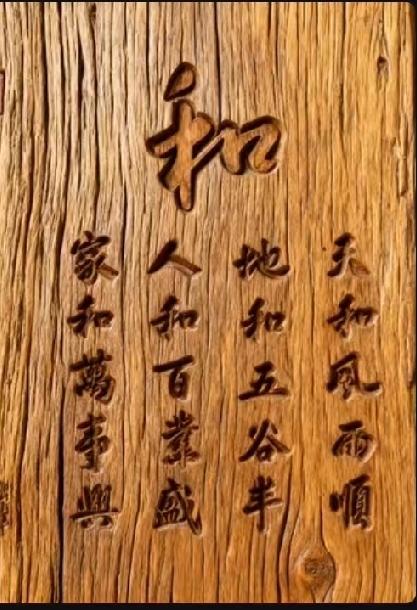 和
天和風雨順
地和五谷丰
人和百業盛
家和萬事興